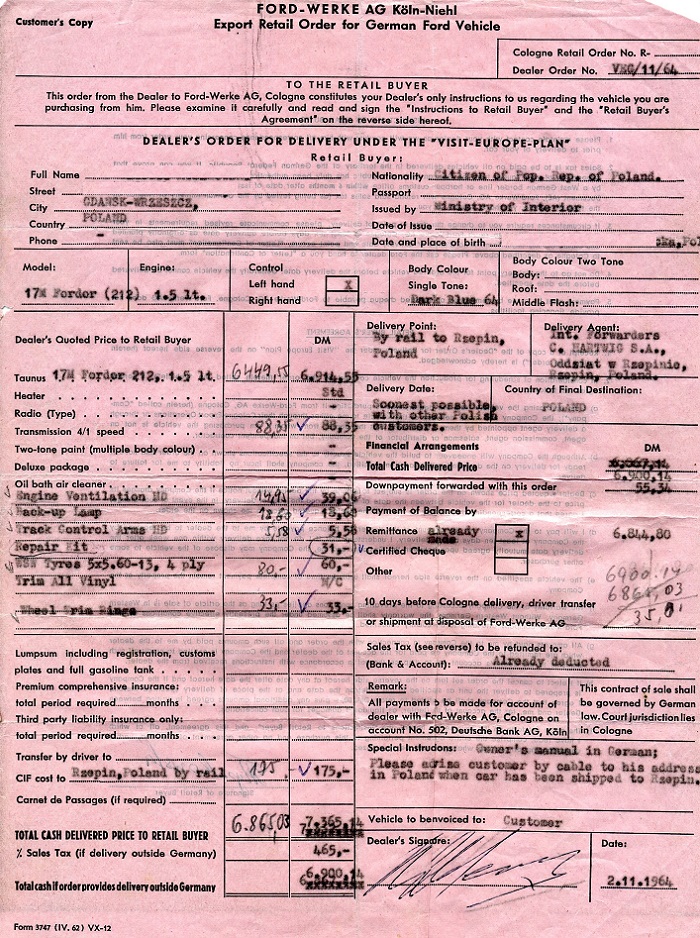 Customer's Copy
FORD-WERKE AG Köln-Niehl
Export Retail Order for German Ford Vehicle
Cologne Retail Order No. R-
Dealer Order No. VEG/11/64
TO THE RETAIL BUYER
This order from the Dealer to Ford-Werke AG, Cologne constitutes your Dealer's only instructions to us regarding the vehicle you are
purchasing from him. Please examine it carefully and read and sign the "Instructions to Retail Buyer" and the "Retail Buyer's
Agreement" on the reverse side hereof.
DEALER'S ORDER FOR DELIVERY UNDER THE "VISIT-EUROPE-PLAN"
Retail Buyer:
Full Name
Street
City GDANSK-WRZESZCZ,
Country POLAND
Phone -
Nationality Citizen of Pop. Rep. of Poland.
Passport
Issued by Ministry of Interior
Date of Issue
Date and place of birth ska, Pol
Model:
17M Fordor (212)
Engine:
1.5 lt.
Control
Left hand X
Right hand
Body Colour
Single Tone:
Dark Blue 64
Body Colour Two Tone
Body:
Roof:
Middle Flash:
Dealer's Quoted Price to Retail Buyer DM
Taunus 17M Fordor 212, 1.5 lt. 6449,55 6.914,55
Heater Std
Radio (Type) -
Transmission 4/1 speed 88,35 88,35
Two-tone paint (multiple body colour) -
Deluxe package -
Oil bath air cleaner -
Engine Ventilation HD 14,95 39,06
Back-up Lamp 18,60 18,60
Track Control Arms HD 5,58 5,58
Repair Kit 31,-
WSW Tyres 5x5.60-13, 4 ply 80,- 60,-
Trim All Vinyl N/C
Wheel Trim Rings 33,- 33,-
Lumpsum including registration, customs
plates and full gasoline tank
Premium comprehensive insurance:
total period required months
Third party liability insurance only:
total period required months
Transfer by driver to
CIF cost to Rzepin, Poland by rail 175 175,-
Carnet de Passages (if required)
TOTAL CASH DELIVERED PRICE TO RETAIL BUYER 6.865,03 7.365,14
% Sales Tax (if delivery outside Germany) 465,-
Total cash if order provides delivery outside Germany 6.900,14
Form 3747 (IV. 62) VX-12
Delivery Point:
By rail to Rzepin,
Poland
Delivery Agent:
Int. Forwarders
C. HARTWIG S.A.,
Oddzial w Rzepinie,
Rzepin, Poland.
Delivery Date:
Soonest possible,
with other Polish
customers.
Country of Final Destination:
POLAND
Financial Arrangements DM
Total Cash Delivered Price
6.900,14
Downpayment forwarded with this order 55,34
Payment of Balance by
Remittance already X 6.844,80
Certified Cheque
Other
6900.14
6865,03
35,01
10 days before Cologne delivery, driver transfer
or shipment at disposal of Ford-Werke AG
Sales Tax (see reverse) to be refunded to:
(Bank & Account): Already deducted
Remark:
All payments to be made for account of
dealer with Ford-Werke AG, Cologne on
account No. 502, Deutsche Bank AG, Köln
This contract of sale shall
be governed by German
law. Court jurisdiction lies
in Cologne
Special Instructions: Owner's manual in German;
Please advise customer by cable to his address
in Poland when car has been shipped to Rzepin.
Vehicle to be invoiced to: Customer
Dealer's Signature:
Date:
2.11.1964